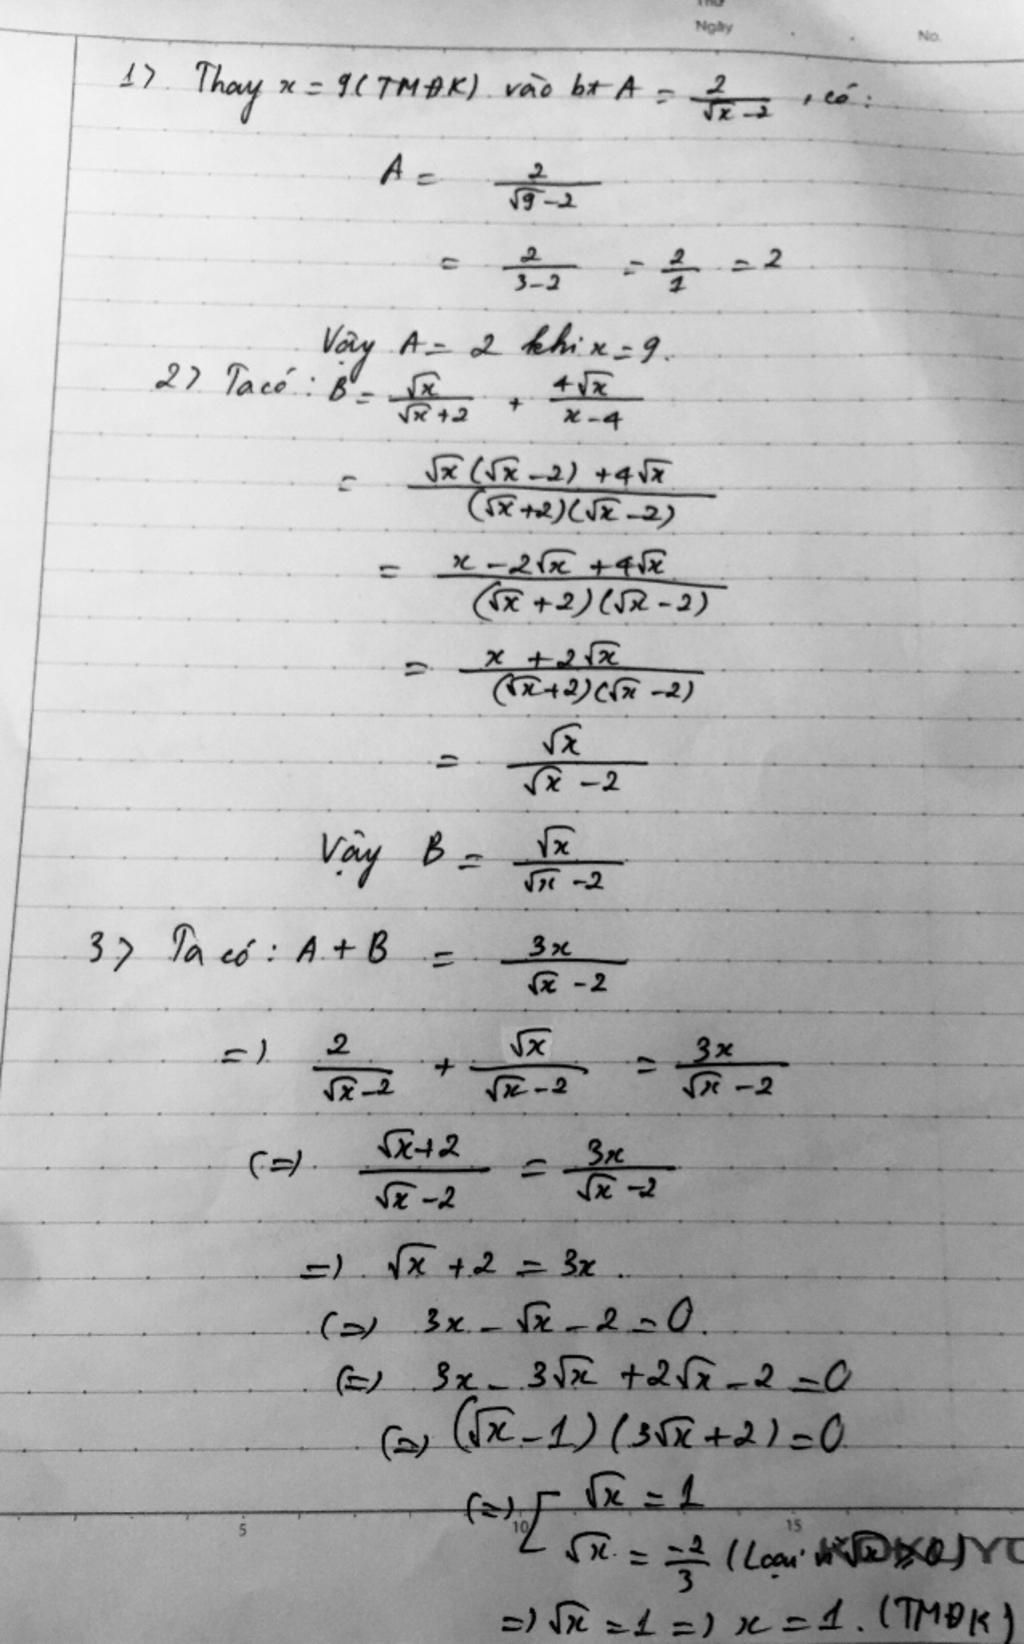 Thứ
Ngày . . No.
1> Thay x = 9 (TMĐK) vào bt A = 2/(√x - 2), có:
A = 2/(√9 - 2)
= 2/(3 - 2) = 2/1 = 2
Vậy A = 2 khi x = 9.
2> Ta có: B = √x/(√x + 2) + 4√x/(x - 4)
= (√x(√x - 2) + 4√x)/((√x + 2)(√x - 2))
= (x - 2√x + 4√x)/((√x + 2)(√x - 2))
= (x + 2√x)/((√x + 2)(√x - 2))
= √x/(√x - 2)
Vậy B = √x/(√x - 2)
3> Ta có: A + B = 3x/(√x - 2)
=) 2/(√x - 2) + √x/(√x - 2) = 3x/(√x - 2)
(=) (√x + 2)/(√x - 2) = 3x/(√x - 2)
=) √x + 2 = 3x.
(=) 3x - √x - 2 = 0.
(=) 3x - 3√x + 2√x - 2 = 0
(=) (√x - 1)(3√x + 2) = 0
(=) [ √x = 1
5 10 15
√x = -2/3 (Loại vì √x ≥ 0) KOKUYO
=) √x = 1 =) x = 1. (TMĐK)